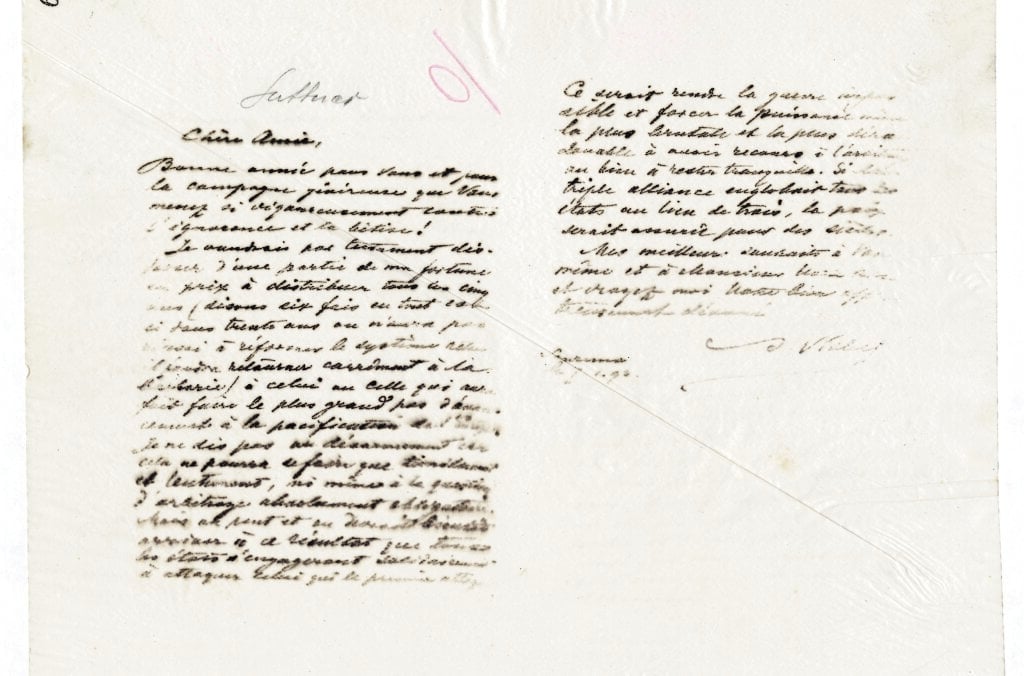 Suttner
Chère Amie,
Bonne année pour vous et pour
la campagne généreuse que Vous
menez si vigoureusement contre
l'ignorance et la bêtise!
Je voudrais par testament dis-
poser d'une partie de ma fortune
en prix à distribuer tous les cinq
ans (disons six fois en tout car
si dans trente ans on n'aura pas
réussi à réformer le système
retourner carrément à la
barbarie) à celui ou celle qui au
fait faire le plus grand pas d'avan
cement à la pacification de
Je ne dis pas au désarmement car
cela ne pourra se faire que
et lentement, ni même à la question
d'arbitrage absolument obligatoire.
Mais on peut et on
arriver à ce résultat que tous
les états s'engageront solidairement
à attaquer celui qui le premier
Ce serait rendre la guerre impos
sible et forcer la puissance même
la plus brutale et la plus dérai
sonnable à avoir recours à
ou bien à rester tranquille. Si la
triple alliance englobait tous les
états au lieu de trois, la paix
serait assurée pour des siècles.
Mes meilleurs
même et à Monsieur
et croyez moi Votre bien
dévoué